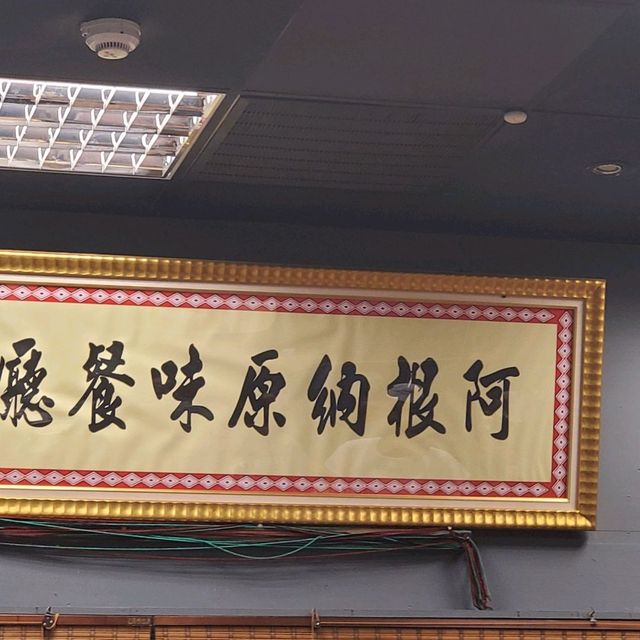 阿根納原味餐廳